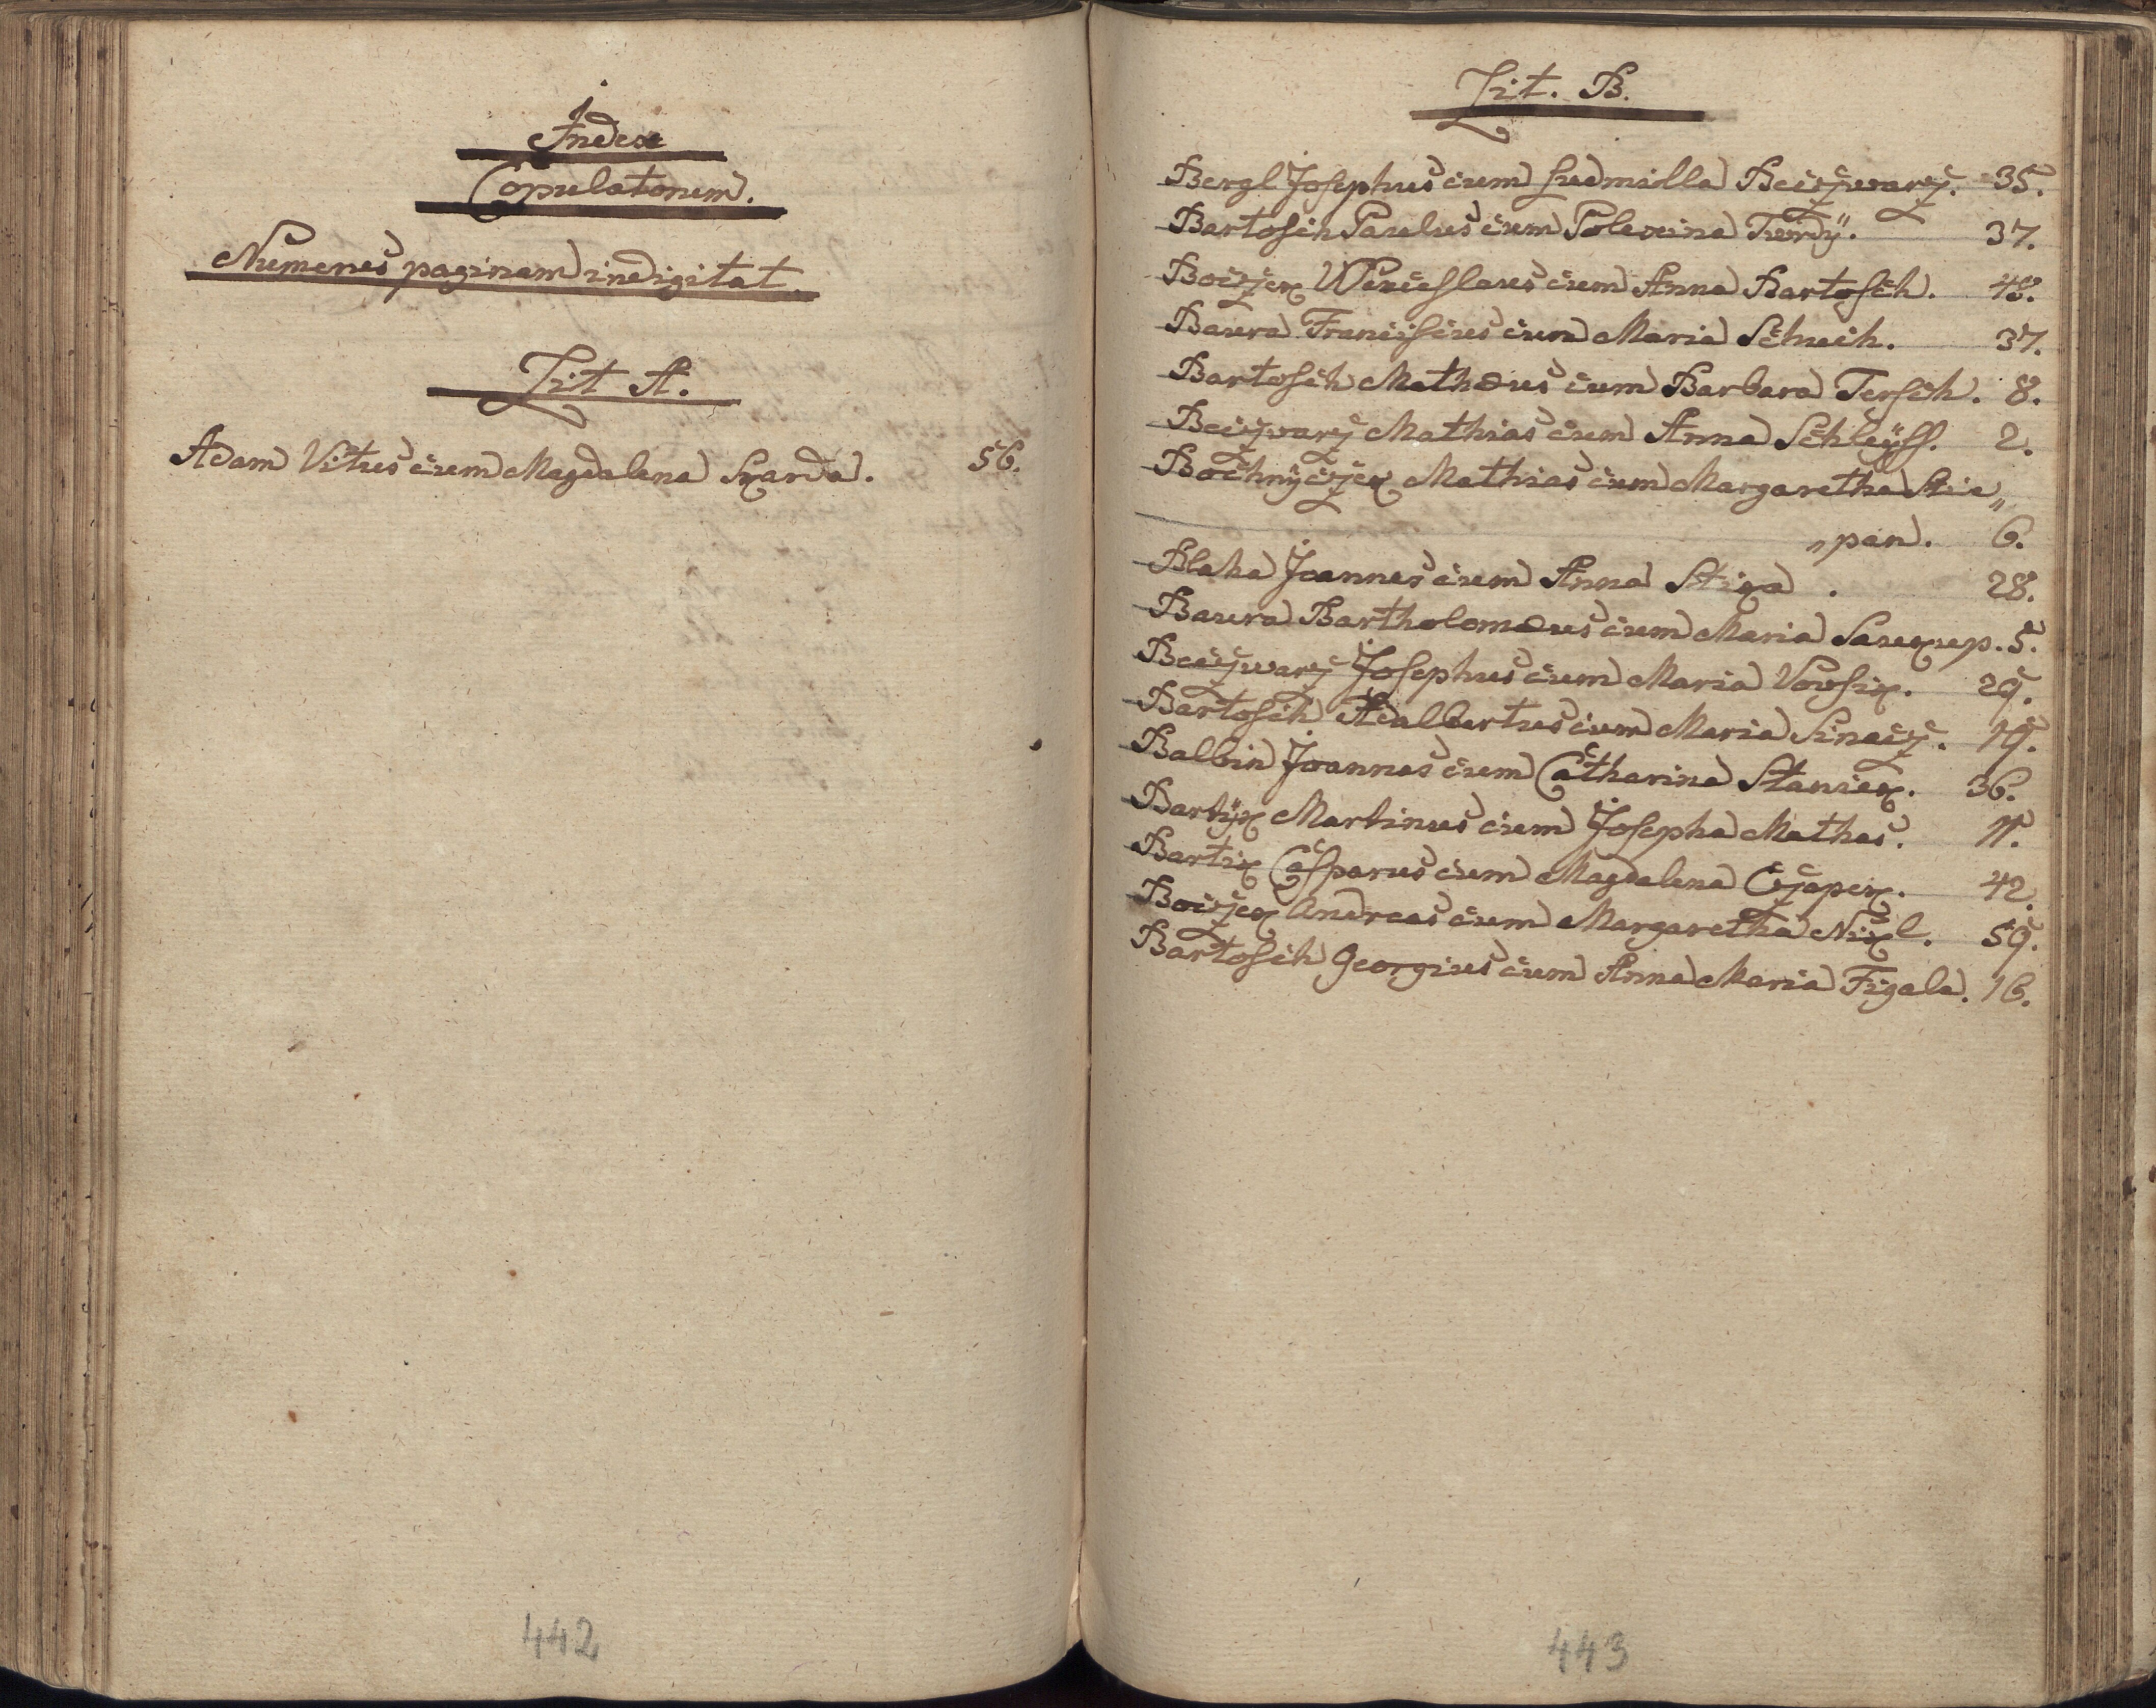 Index
Copulatorum.
Numerus paginam indigitat.
Lit A.
Adam Vitus cum Magdalena Skarda. 56.
442
Lit. B.
Bergl Josephus cum Ludmilla Beczwarz. 35.
Bartosch Paulus cum Polexina Twrdÿ. 37.
Boczek Wenceslaus cum Anna Bartosch. 48.
Baura Franciscus cum Maria Schuch. 37.
Bartosch Mathæus cum Barbara Tersch. 8.
Beczwarz Mathias cum Anna Schleÿss. 2.
Bochnÿczek Mathias cum Margaretha Stie„
„pan. 6.
Blaha Joannes cum Anna Stika. 28.
Baura Bartholomæus cum Maria Saukup. 5.
Beczwarz Josephus cum Maria Vovsik. 29.
Bartosch Adalbertus cum Maria Sinacz. 19.
Balbin Joannes cum Catharina Staniek. 36.
Bartÿk Martinus cum Josepha Mathas. 11.
Bartik Casparus cum Magdalena Czapek. 42.
Boczek Andreas cum Margaretha Nikl. 59.
Bartosch Georgius cum Anna Maria Figala. 16.
443